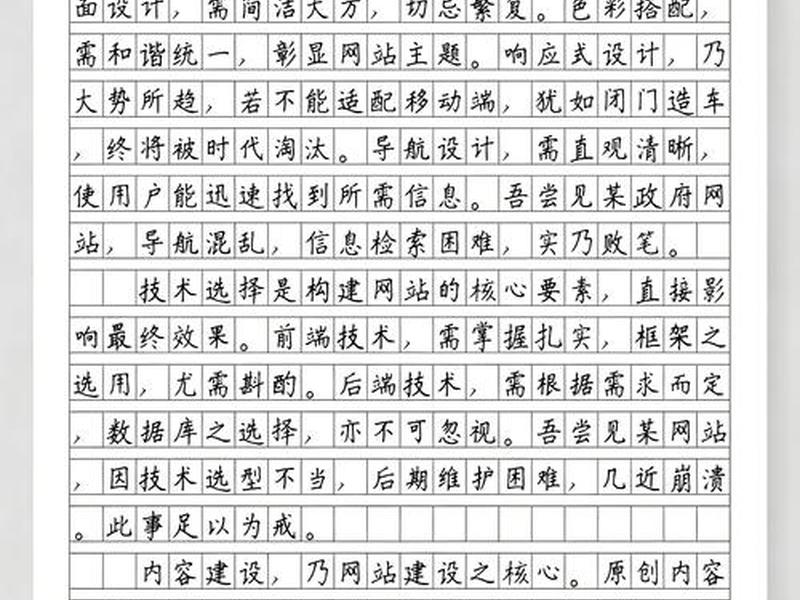 面设计，需简洁大方，切忌繁复。色彩搭配，
需和谐统一，彰显网站主题。响应式设计，乃
大势所趋，若不能适配移动端，犹如闭门造车
，终将被时代淘汰。导航设计，需直观清晰，
使用户能迅速找到所需信息。吾尝见某政府网
站，导航混乱，信息检索困难，实乃败笔。
技术选择是构建网站的核心要素，直接影
响最终效果。前端技术，需掌握扎实，框架之
选用，尤需斟酌。后端技术，需根据需求而定
，数据库之选择，亦不可忽视。吾尝见某网站
，因技术选型不当，后期维护困难，几近崩溃
。此事足以为戒。
内容建设，乃网站建设之核心。原创内容